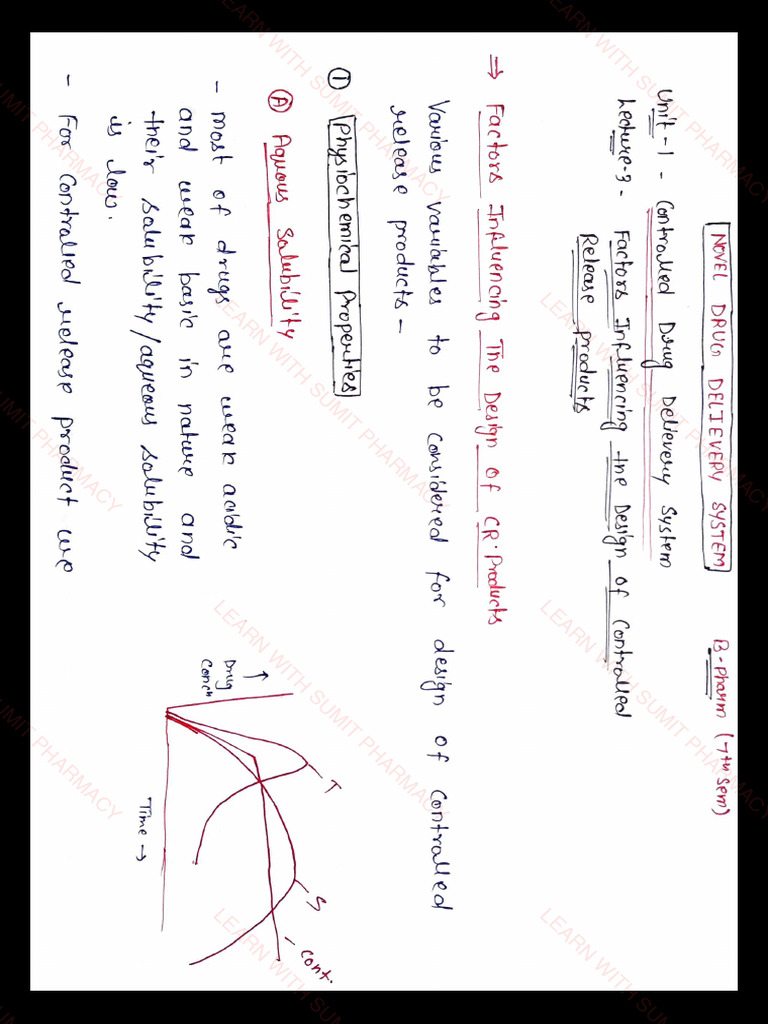 NOVEL DRUG DELIEVERY SYSTEM
B-Pharm (7th Sem)
Unit-1 - Controlled Drug Delievery System
Lecture-3 - Factors Influencing the Design of Controlled
Release Products
→ Factors Influencing The Design Of CR.Products
Various variables to be considered for design of controlled
release products -
① Physiochemical Properties
Ⓐ Aquous Salubility
- most of drugs are weak acidic
and weak basic in nature and
their salubility/aqueous salubility
is low.
- For controlled release product we
Drug
Concn
Time →
T
S
Cont.
LEARN WITH SUMIT PHARMACY